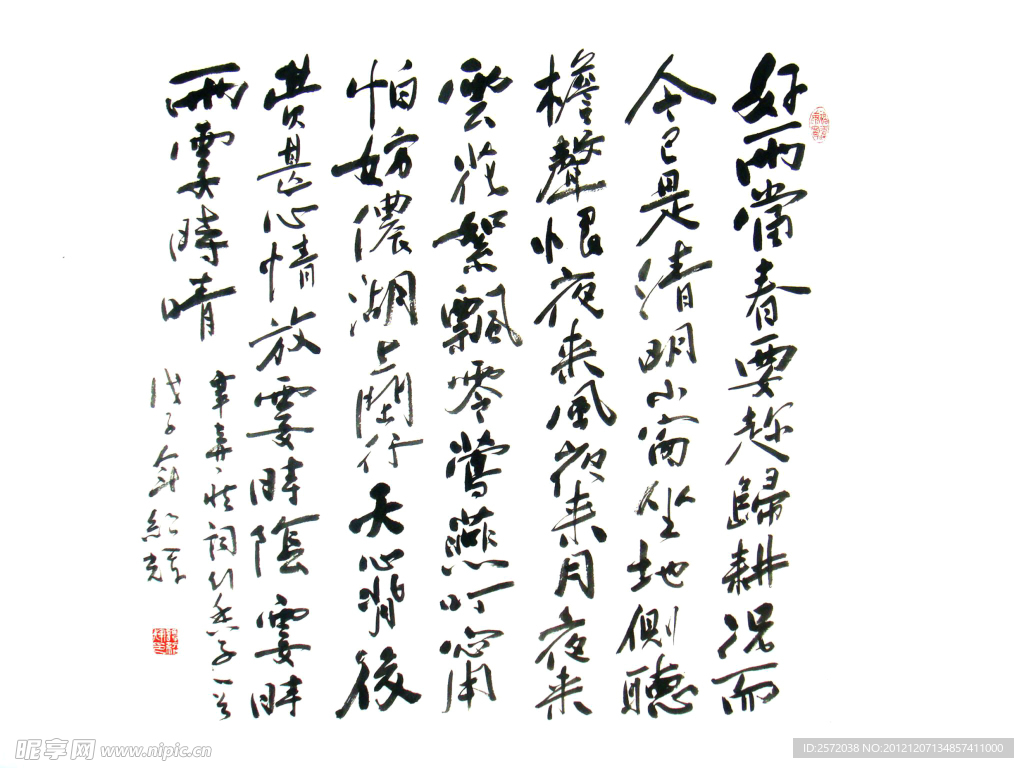 好雨當春要趁歸耕況而
今已是清明小窗坐地側聽
檐聲恨夜来風夜来月夜来
雲花絮飄零鶯燕叮嚀
怕妨儂湖上閑行天心肯後
費甚心情放霎時陰霎時
雨霎時晴
辛棄疾詞行香子一首
戊子年
昵享网 www.nipic.cn
ID:2572038 NO:20121207134857411000